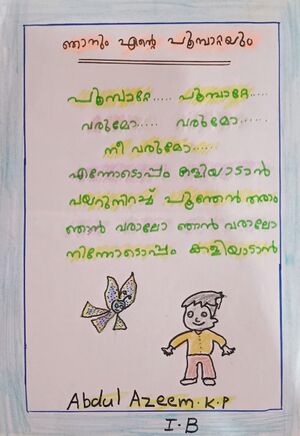 ഞാനും എന്റെ പൂമ്പാറ്റയും
പൂമ്പാറ്റേ..... പൂമ്പാറ്റേ.....
വരുമോ..... വരുമോ.....
നീ വരുമോ.....
എന്നോടൊപ്പം കളിയാടാൻ
പയറുനിറച്ച് പൂന്തേൻ തരാം
ഞാൻ വരാലോ ഞാൻ വരാലോ
നിന്നോടൊപ്പം കളിയാടാൻ
Abdul Azeem.K.P
I.B